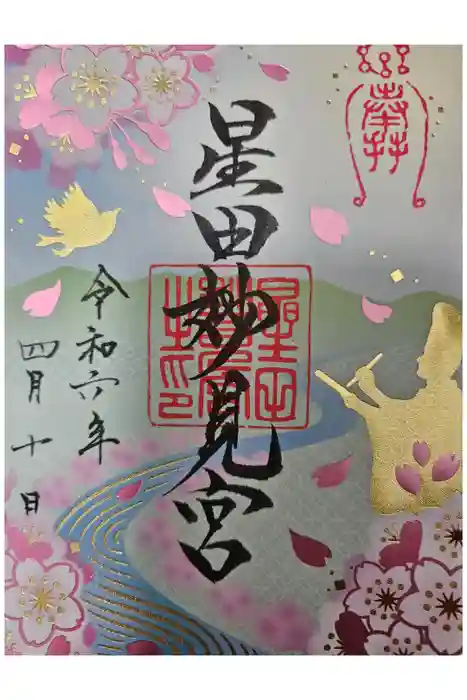 星田妙見宮
令和六年
四月十日